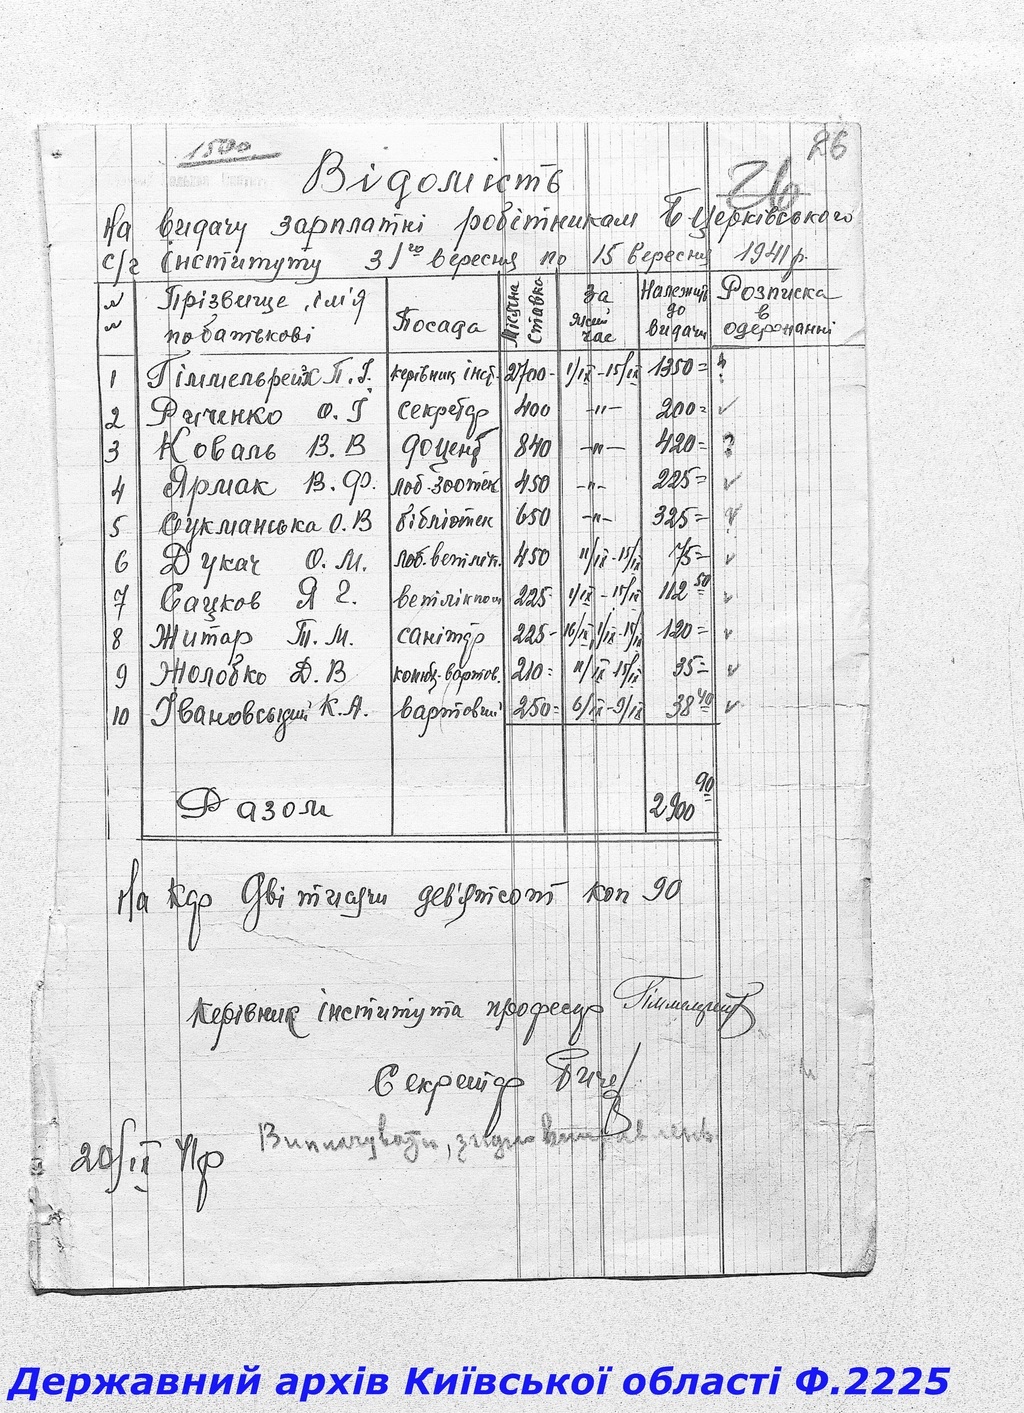 1500
26
Відомість
26
На видачу зарплатні робітникам Б Церківського
с/г інституту з 1го вересня по 15 вересня 1941 р.
№ № Прізвище, ім'я по батькові Посада Місячна ставка За який час Належить до видачи Розписка в одержанні
1 Гіммельрейх П. Г. керівник інст. 2700- 1/IX-15/IX 1350= ?
2 Риченко О. Г секретар 400 -"- 200= ✓
3 Коваль В. В доцент 840 -"- 420= ?
4 Ярмак В. Ф. лаб-зоотех 450 -"- 225= ✓
5 Сукманська О. В бібліотек 650 -"- 325= ✓
6 Дукач О. М. лаб. ветлік. 450 11/IX-15/IX 75= ✓
7 Сацков Я Г. ветлікпом 225- 1/IX-15/IX 112 50 ✓
8 Житар Т. М. санітар 225- 120= ✓
9 Жолобко Д. В конюх-вартов. 210= 11/IX-15/IX 35= ✓
10 Івановський К. А. вартовий 250= 6/IX-9/IX 38 40 ✓
Разом 2900 90
На крб Дві тисячи дев'ятсот коп 90
Керівник інститута професор
Секретар
Виплачувати, згідно
20/IX 41р
Державний архів Київської області Ф.2225